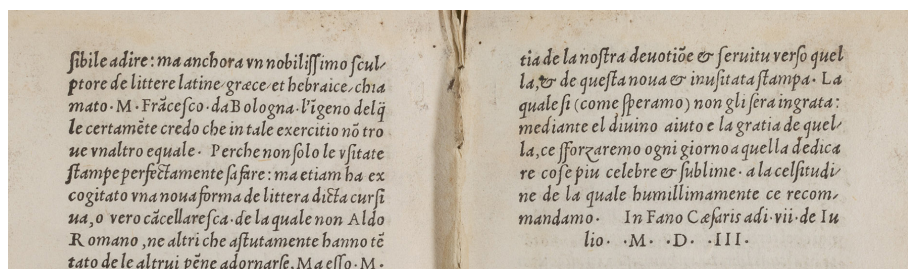 ſibile adire : ma anchora vn nobiliſſimo ſcul-
ptore de littere latine græce et hebraice, chia
mato · M · Frãceſco · da Bologna · l'igeno delq̃
le certamẽte credo che in tale exercitio nõ tro
ue vnaltro equale · Perche non ſolo le vſitate
ſtampe perfectamente ſa fare : ma etiam ha ex
cogitato vna noua forma de littera dicta curſi
ua, o vero cãcellareſca · de la quale non Aldo
Romano , ne altri che aſtutamente hanno tẽ
tato de le altrui pẽne adornarſe. Ma eſſo · M ·
tia de la noſtra deuotiõe & ſeruitu verſo quel
la, & de queſta noua & inuſitata ſtampa · La
quale ſi (come ſperamo) non gli ſera ingrata :
mediante el diuino aiuto e la gratia de quel-
la, ce sforzaremo ogni giorno a quella dedica
re coſe piu celebre & ſublime · a la celſitudi-
ne de la quale humillimamente ce recom-
mandamo · In Fano Cæſaris adi · vii · de Iu
lio · · M · D · · III ·